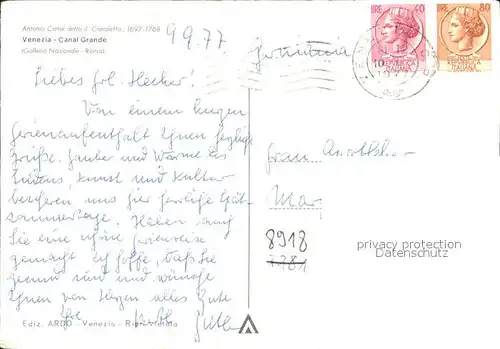 Antonio Canal detto il Canaletto, 1697-1768
Venezia - Canal Grande
(Galleria Nazionale - Roma)
9.9.77
Germania
LIRE 40
LIRE 80
REPVBBLICA
ITALIANA
REPVBBLICA
ITALIANA
Liebes Frl. Hecker!
Von einem kurzen
Ferienaufenthalt Ihnen
Grüße. Zauber und Wärme des
Südens, Kunst und Kultur
bescheren uns hier herrliche Spät-
sommertage. Haben auch
Sie eine schöne Ferienreise
gemacht. Ich hoffe, daß Sie
gesund sind und wünsche
Ihnen von Herzen alles Gute
Frau
8918
7781
privacy protection
Datenschutz
Ediz. ARDO - Venezia - Rip. Vietata